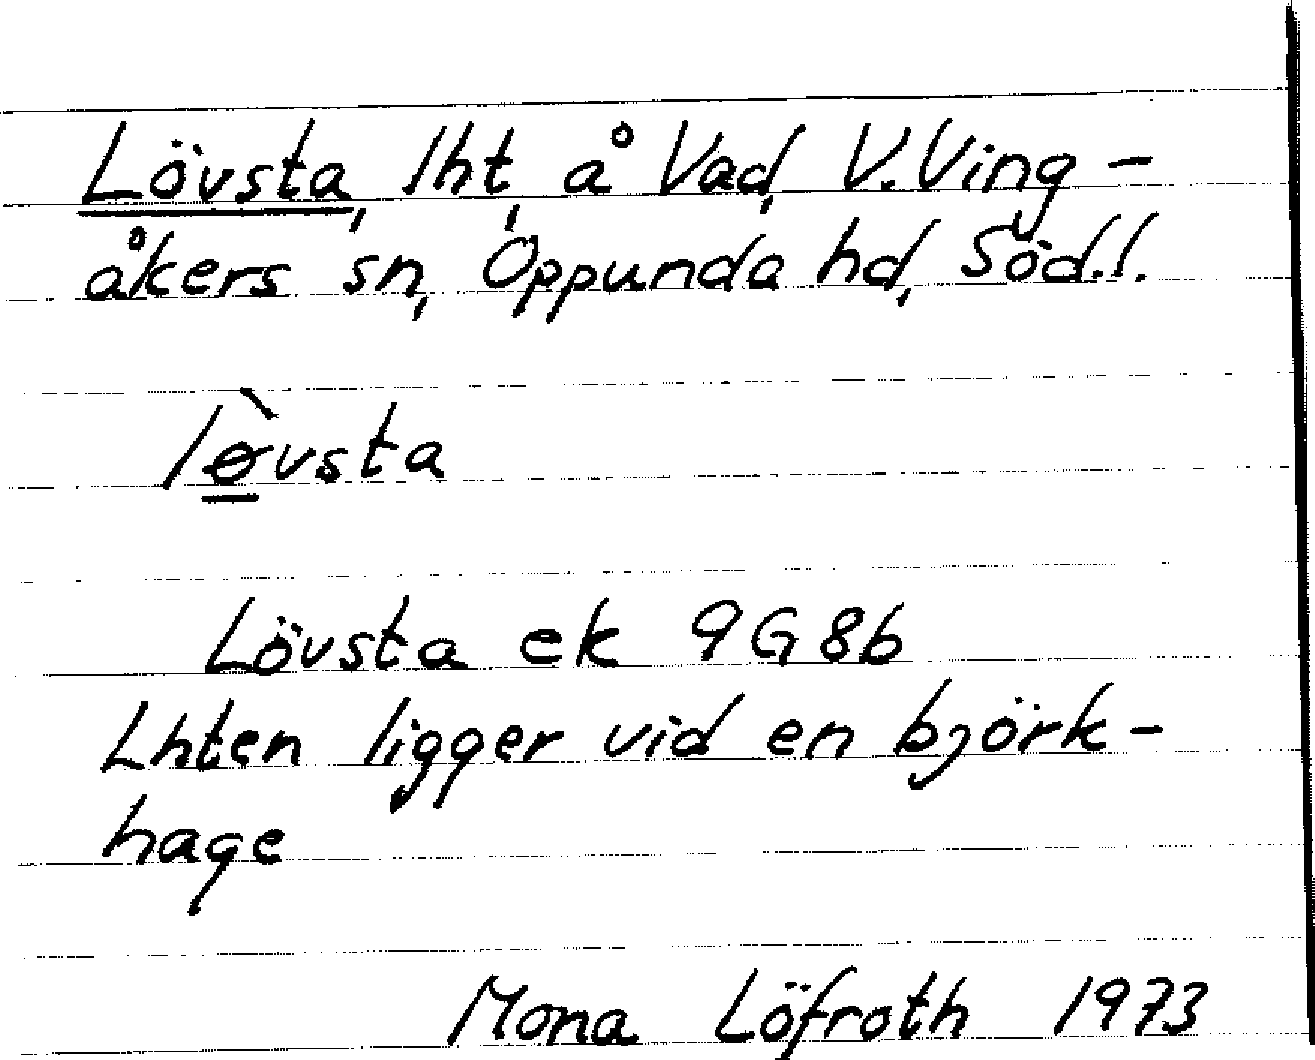 Lövsta, lht, å Vad, V. Ving-
åkers sn, Oppunda hd, Söd.l.
lø̲̀vsta
Lövsta ek 9G8b
Lhten ligger vid en björk-
hage
Mona Löfroth 1973